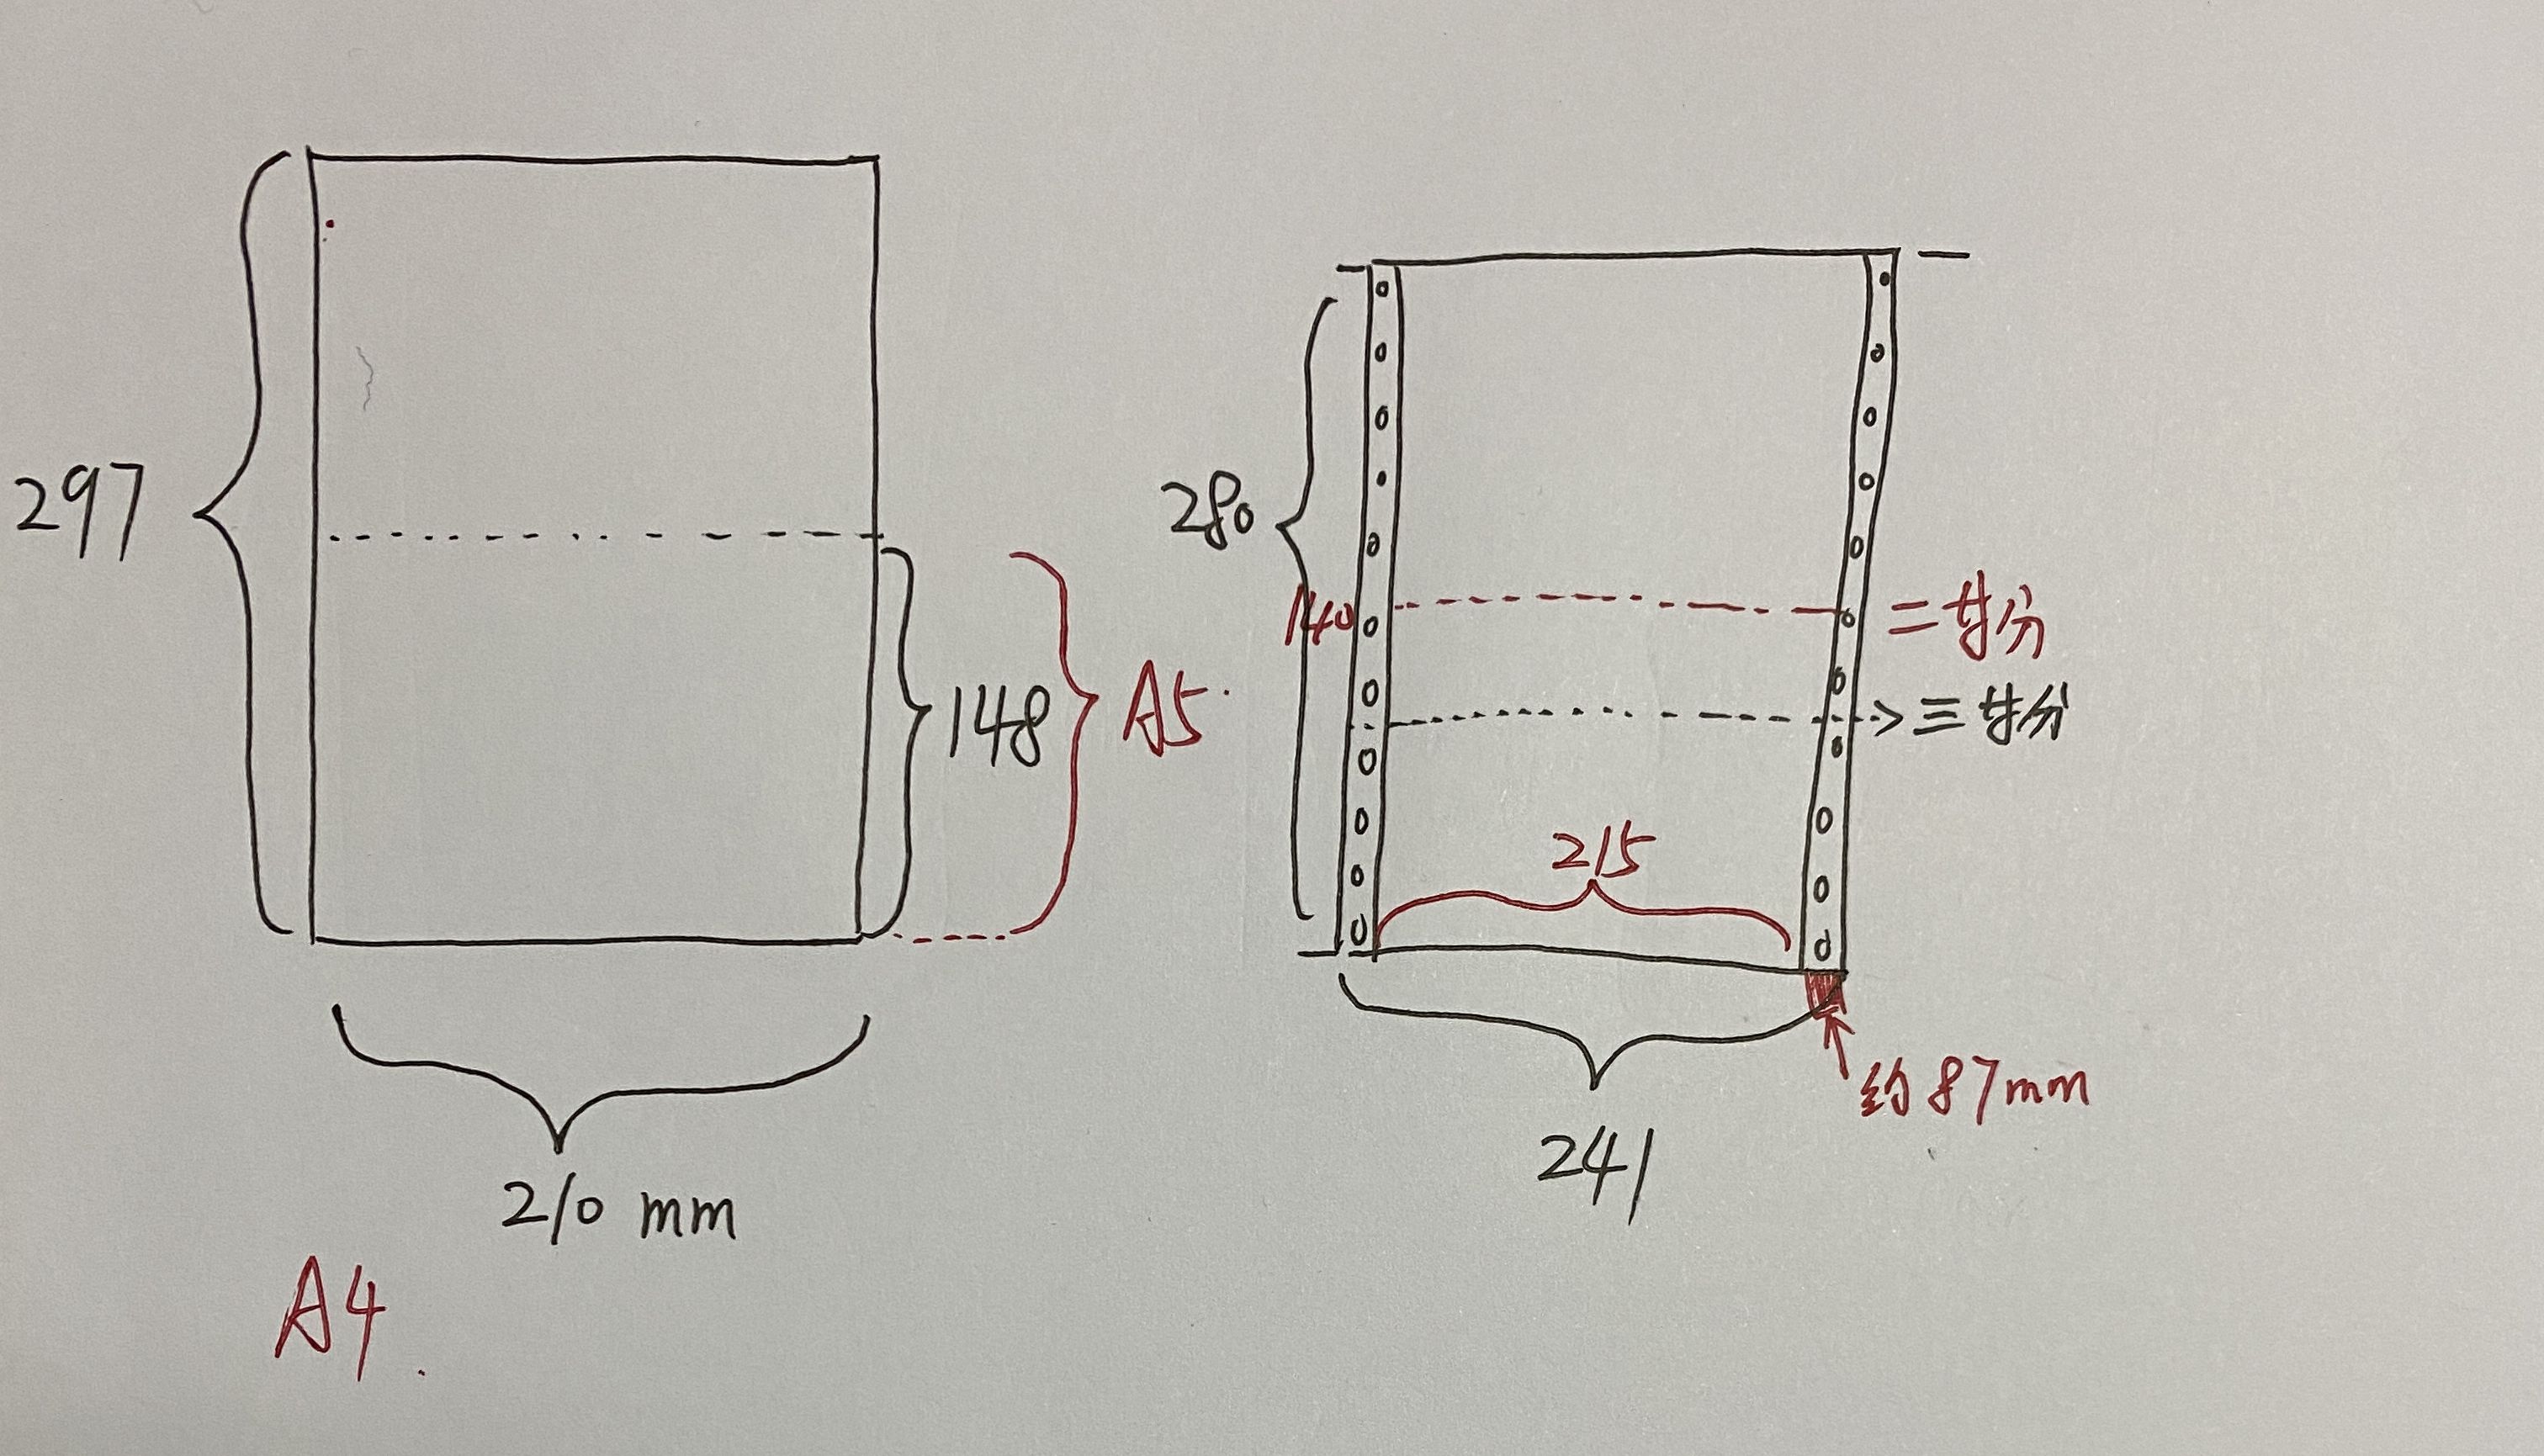 297
148
A5
210 mm
A4
280
140
二廿分
三廿分
215
241
约87mm